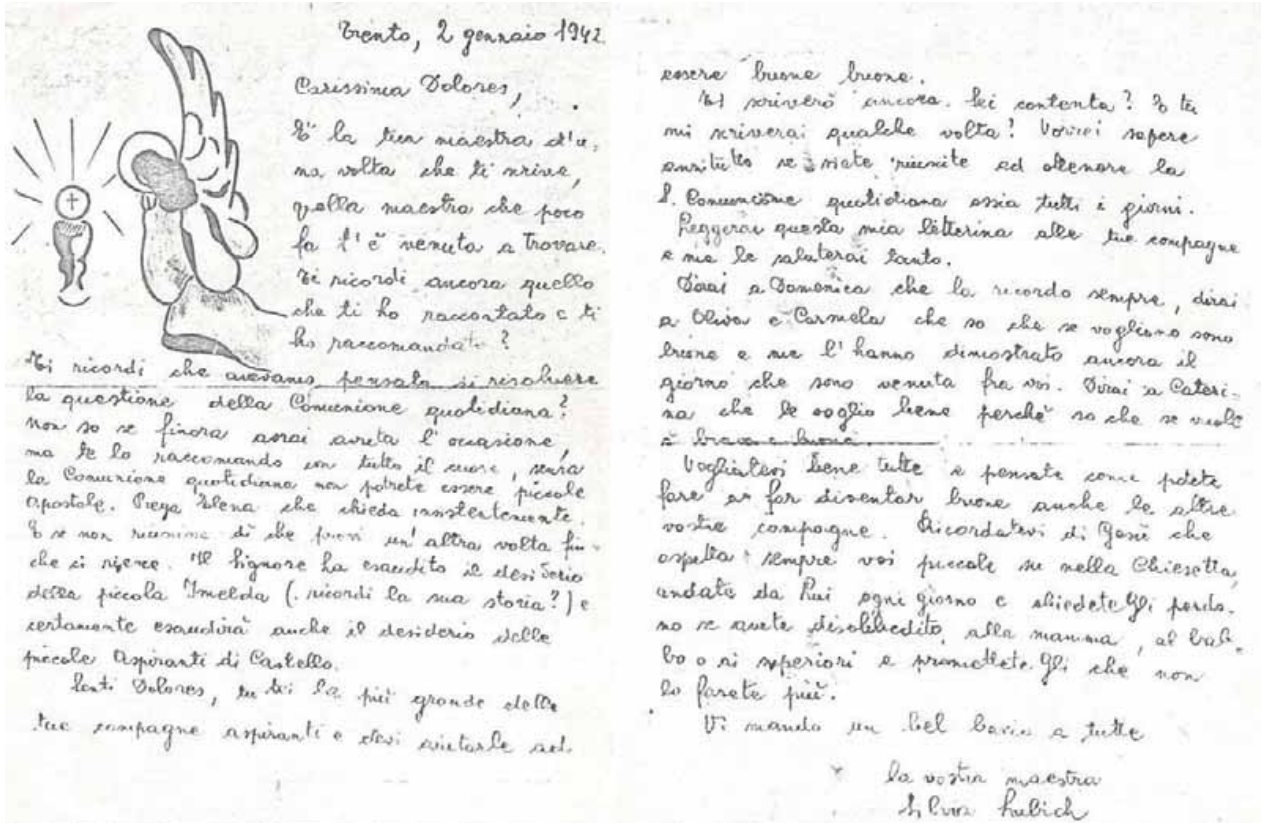 Trento, 2 gennaio 1942.
Carissima Dolores,
È la tua maestra d'u-
na volta che ti scrive,
quella maestra che poco
fa t'è venuta a trovare.
Ti ricordi ancora quello
che ti ho raccontato e ti
ho raccomandato?
Ti ricordi che avevamo pensato di risolvere
la questione della Comunione quotidiana?
non so se finora avrai avuta l'occasione,
ma te lo raccomando con tutto il cuore, senza
la Comunione quotidiana non potrete essere piccole
apostole. Prega Elena che chieda insistentemente.
E se non dì che provi un'altra volta fin-
che ci riesce. Il Signore ha esaudito il desiderio
della piccola Imelda (ricordi la sua storia?) e
certamente esaudirà anche il desiderio delle
piccole Aspiranti di Castello.
Senti Dolores, tu sei la più grande delle
tue compagne aspiranti e devi aiutarle ad
essere buone buone.
Ti scriverò ancora. Sei contenta? E tu
mi scriverai qualche volta? Vorrei sapere
se siete riuscite ad ottenere la
S. Comunione quotidiana ossia tutti i giorni.
Leggerai questa mia letterina alle tue compagne
e me le saluterai tanto.
Dirai a Domenica che la ricordo sempre, dirai
a Oliva e Carmela che so che se vogliono sono
buone e me l'hanno dimostrato ancora il
giorno che sono venuta fra voi. Dirai a Cateri-
na che le voglio bene perchè so che se vuole
è brava e buona.
Vogliatevi bene tutte e pensate come potete
fare a far diventar buone anche le altre
vostre compagne. Ricordatevi di Gesù che
aspetta sempre voi piccole su nella Chiesetta,
andate da Lui ogni giorno e chiedeteGli perdo-
no se avete disobbedito alla mamma, al bab-
bo o ai superiori e prometteteGli che non
lo farete più.
Vi mando un bel bacio a tutte
la vostra maestra
Silvia Lubich